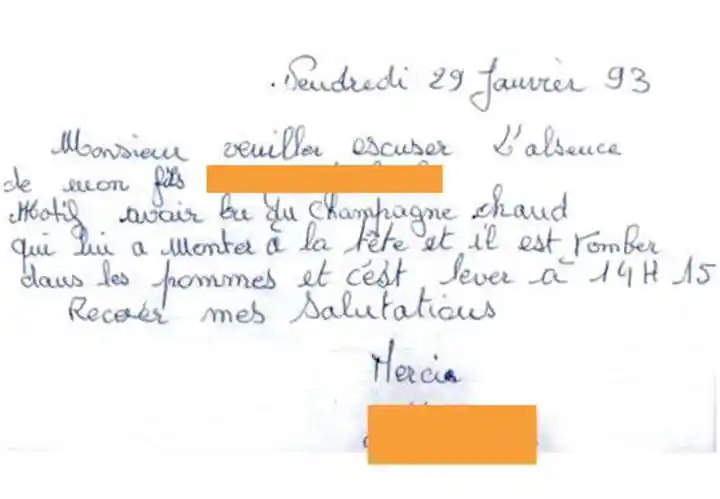 Vendredi 29 Janvier 93
Monsieur veuiller escuser L'absence
de mon fils
Motif avoir bu du Champagne chaud
qui lui a Monter à la tête et il est Tomber
dans les pommes et c'ést lever à 14H15
Recever mes Salutations
Mercie